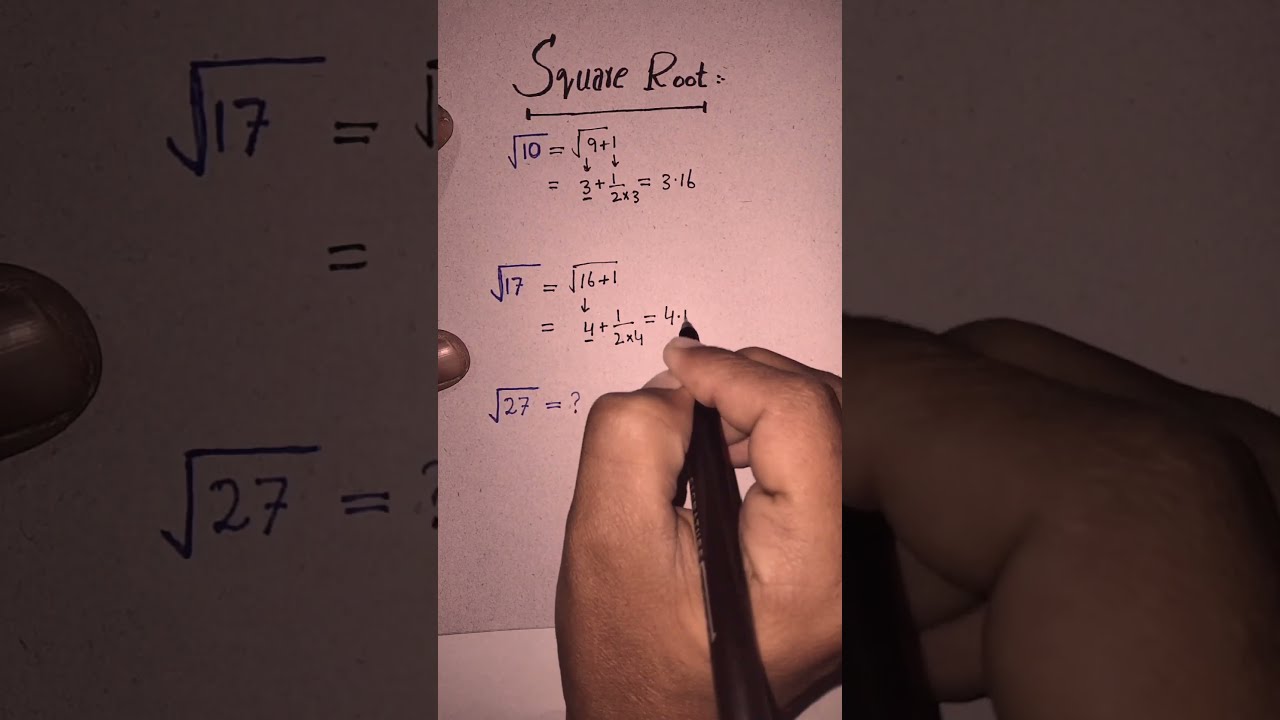 Square Root:-
√10 = √9+1
= 3 + 1/2×3 = 3·16
√17 = √16+1
= 4 + 1/2×4 = 4·1
√27 = ?